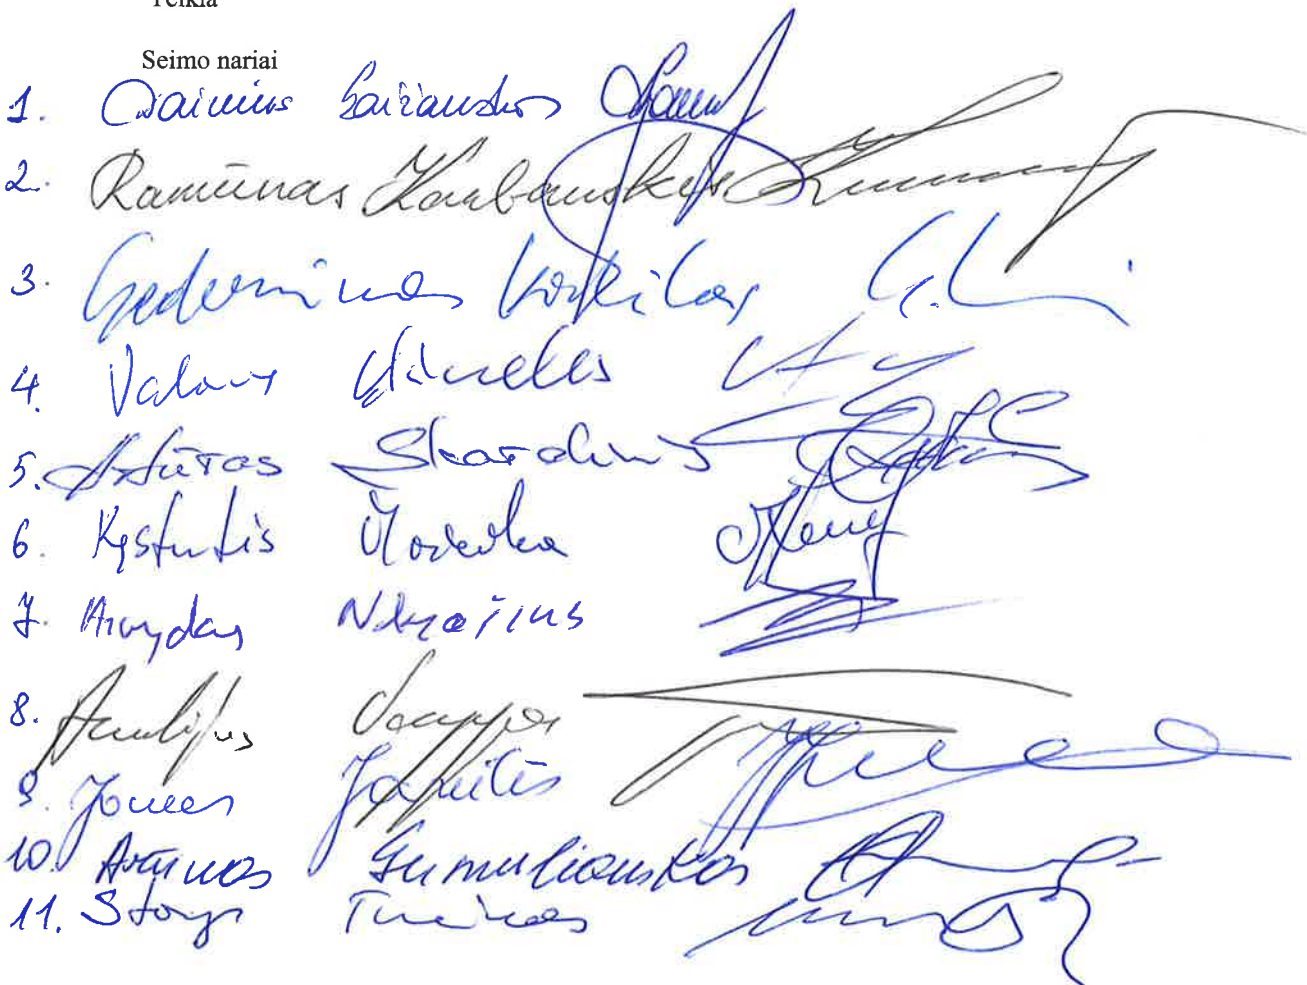 Teikia
Seimo nariai
1. Dainius Gaižauskas
2. Ramūnas Karbauskis
3. Gediminas Kirkilas
4. Valius Ąžuolas
5. Artūras Skardžius
6. Kęstutis Mažeika
7. Arvydas Nekrošius
8. Aurelijus Veryga
9. Jonas Jarutis
10. Arūnas Gumuliauskas
11. Stasys Tumėnas